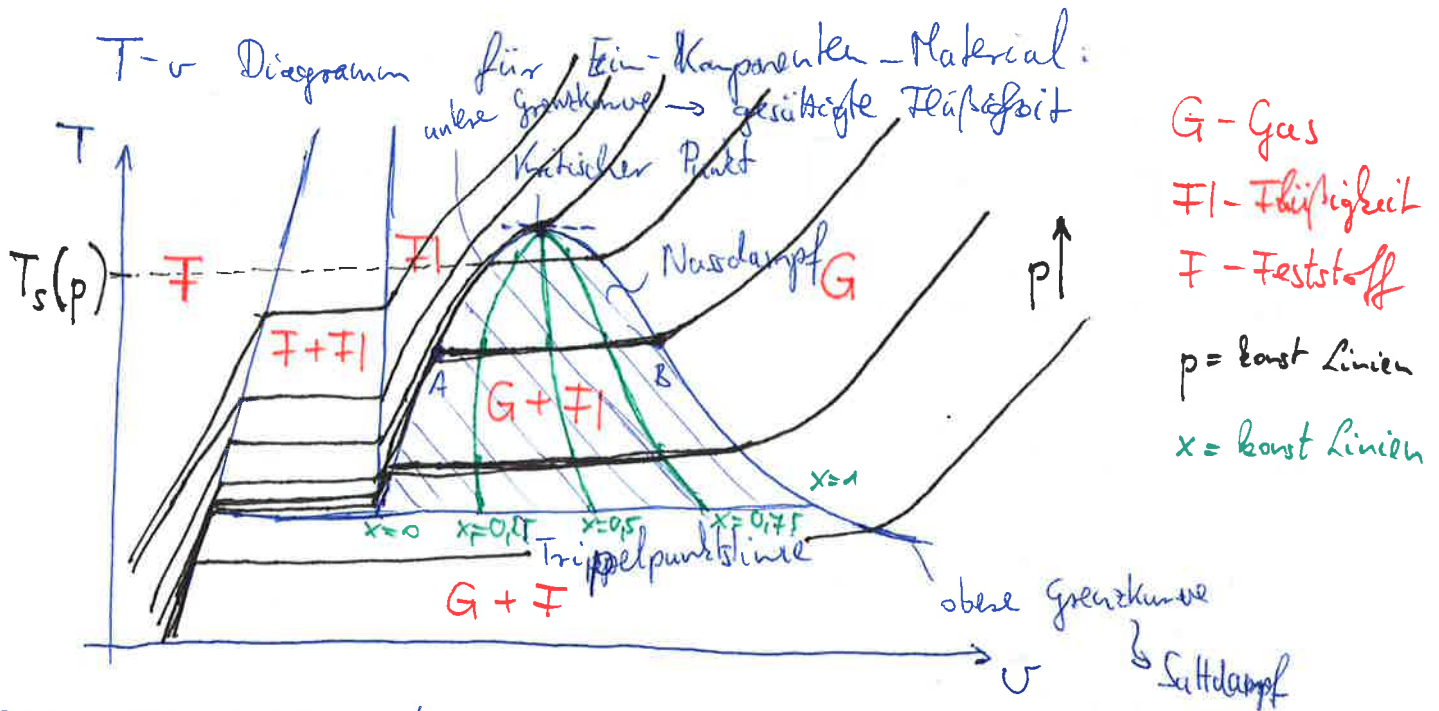 T-v Diagramm für Ein-Komponenten-Material:
untere Grenzkurve → gesättigte Flüßigkeit
Kritischer Punkt
T
T_s(p)
F
Fl
F+Fl
Nassdampf
G
A
B
G+Fl
x=0
x=0,25
x=0,5
x=0,75
x=1
Trippelpunktslinie
G+F
obere Grenzkurve
Sattdampf
v
p↑
G - Gas
Fl - Flüßigkeit
F - Feststoff
p = konst Linien
x = konst Linien